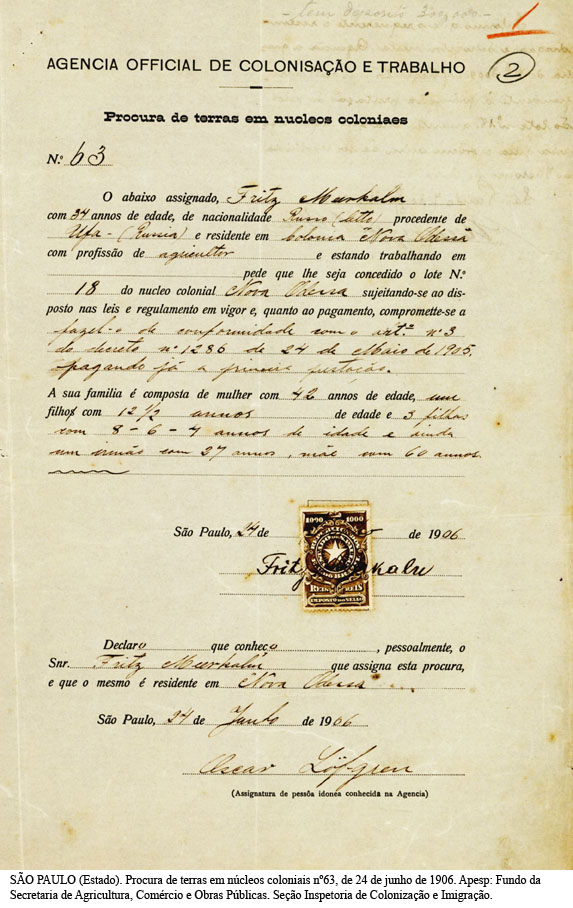 1
2
AGENCIA OFFICIAL DE COLONISAÇÃO E TRABALHO
Procura de terras em nucleos coloniaes
N.º 63
O abaixo assignado, Fritz Murkaln
com 34 annos de edade, de nacionalidade Russo (Letto) procedente de
Ufa - (Russia) e residente em Colonia "Nova Odessa
com profissão de agricultor e estando trabalhando em
pede que lhe seja concedido o lote N.º
18 do nucleo colonial Nova Odessa sujeitando-se ao dis-
posto nas leis e regulamento em vigor e, quanto ao pagamento, compromette-se a
fazel-o de conformidade com o artº nº 3
do decreto nº 1286 de 24 de Maio de 1905,
pagando já a primeira prestação.
A sua familia é composta de mulher com 42 annos de edade, um
filho com 12 1/2 annos de edade e 3 filhas
com 8 - 6 - 4 annos de idade e ainda
um irmão com 27 annos, mãe com 60 annos.
São Paulo, 24 de de 1906
1000 1000
REIS REIS
Fritz Murkaln
Declaro que conheço , pessoalmente, o
Snr. Fritz Murkaln que assigna esta procura,
e que o mesmo é residente em Nova Odessa
São Paulo, 24 de Junho de 1906
Oscar Löfgren
(Assignatura de pessôa idonea conhecida na Agencia)
SÃO PAULO (Estado). Procura de terras em núcleos coloniais nº63, de 24 de junho de 1906. Apesp: Fundo da
Secretaria de Agricultura, Comércio e Obras Públicas. Seção Inspetoria de Colonização e Imigração.